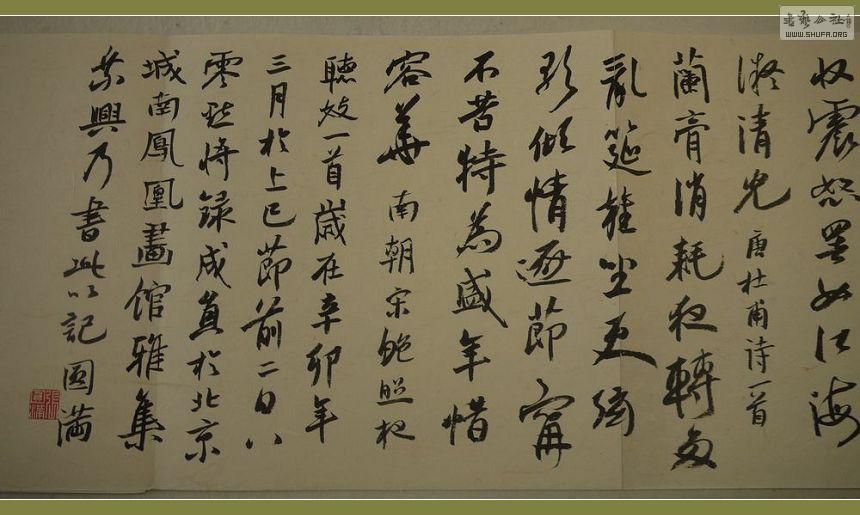 書藝公社
WWW.SHUFA.ORG
收震怒罷如江海
凝清光 唐杜甫诗一首
蘭膏消耗夜轉多
亂筵雜坐更絃
歌傾情逐節寧
不苦特為盛年惜
容華 南朝宋鮑照夜
聽妓一首歲在辛卯年
三月於上巳節前二日八
零 將録成 於北京
城南鳳凰畫館雅集
乘興乃書此以記 圓滿